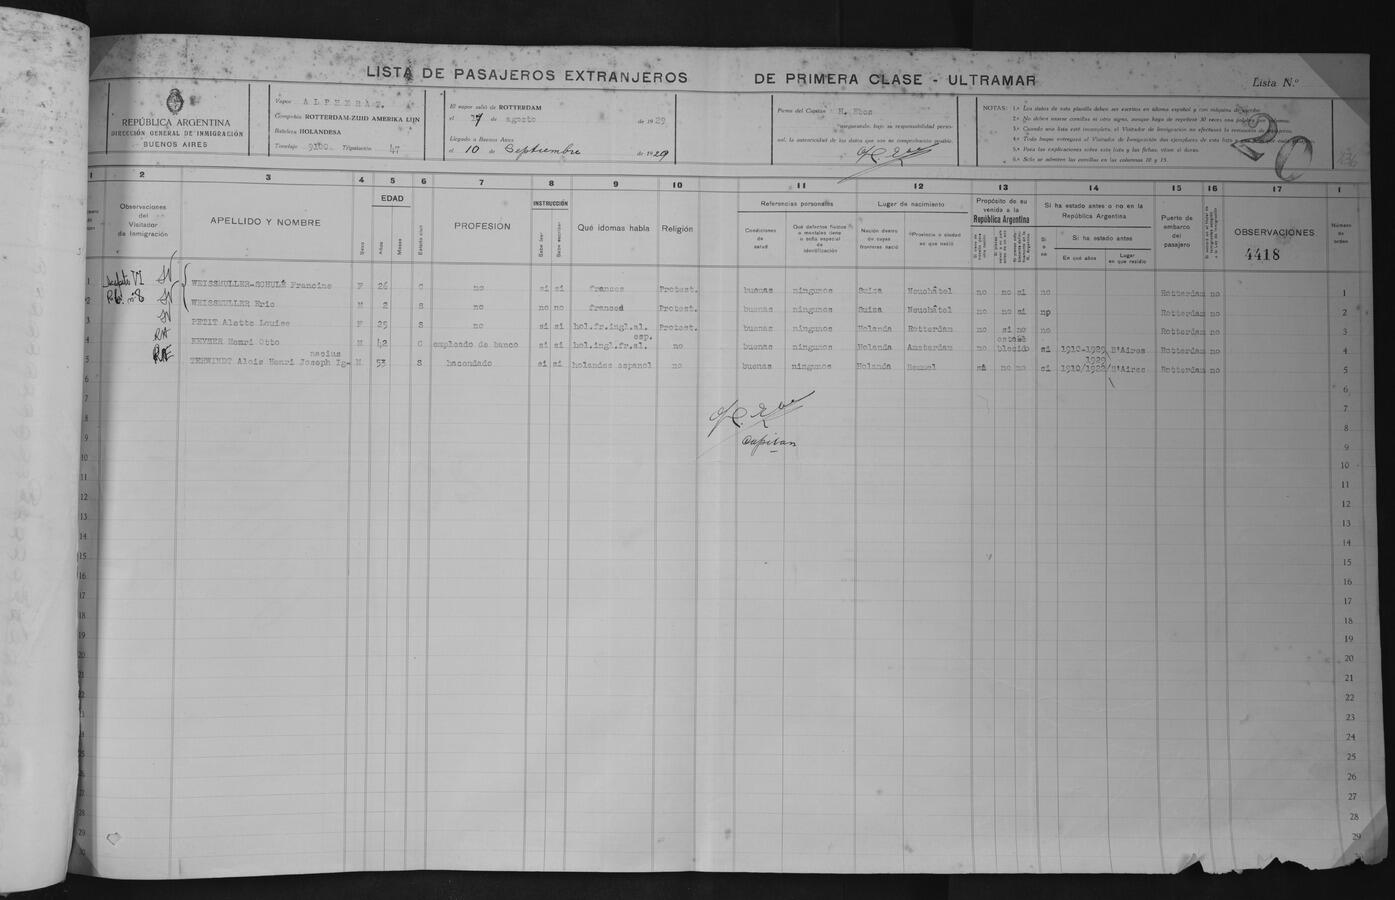 LISTA DE PASAJEROS EXTRANJEROS DE PRIMERA CLASE - ULTRAMAR
Lista N.º
REPÚBLICA ARGENTINA
DIRECCIÓN GENERAL DE INMIGRACIÓN
BUENOS AIRES
Vapor
Compañía ROTTERDAM-ZUID AMERIKA LIJN
Bandera HOLANDESA
Tonelaje 9100 Tripulación 47
El vapor salió de ROTTERDAM
el de agosto de 1929
Llegado a Buenos Aires
el 10 de Septiembre de 1929
Firma del Capitán
asegurando, bajo su responsabilidad perso-
nal, la autenticidad de los datos que son su comprobación posible.
NOTAS: 1.ª Los datos de esta planilla deben ser escritos en idioma español y con máquina de escribir.
2.ª No deben usarse comillas u otro signo, aunque haya de repetirse 30 veces una palabra
3.ª Cuando una lista esté incompleta, el Visitador de Inmigración
4.ª Todo buque entregará al Visitador de Inmigración dos ejemplares de esta lista
5.ª Para las explicaciones sobre esta lista y las fichas, véase al dorso.
6.ª Sólo se admiten las comillas en las columnas 10 y 15.
1 2 3 4 5 6 7 8 9 10 11 12 13 14 15 16 17 1
Observaciones del Visitador de Inmigración
APELLIDO Y NOMBRE
Sexo
EDAD
Años
Meses
Estado civil
PROFESIÓN
INSTRUCCIÓN
Sabe leer
Sabe escribir
Qué idomas habla
Religión
Referencias personales
Condiciones de salud
Qué defectos físicos o mentales tiene o seña especial de identificación
Lugar de nacimiento
Nación dentro de cuyas fronteras nació
Provincia o ciudad en que nació
Propósito de su venida a la República Argentina
Si ha estado antes o no en la República Argentina
Si o no
Si ha estado antes
En qué años
Lugar en que residió
Puerto de embarco del pasajero
OBSERVACIONES
4418
Número de orden
1 WEISSMULLER-SCHULÉ Francine F 26 C no si si frances Protest. buenas ningunos Suiza Neuchâtel no no si no Rotterdam no 1
2 WEISSMULLER Eric M 2 S no no no frances Protest. buenas ningunos Suiza Neuchâtel no no si no Rotterdam no 2
3 PETIT Alette Louise F 25 S no si si hol.fr.ingl.al. Protest. buenas ningunos Holanda Rotterdam no si no no Rotterdam no 3
esp.
4 KEYZER Henri Otto M 42 C empleado de banco si si hol.ingl.fr.al. no buenas ningunos Holanda Amsterdam no si 1910-1929 B'Aires Rotterdam no 4
nacius 1929
5 TERWINDT Alois Henri Joseph Ig- M 53 S hacendado si si holandes espanol no buenas ningunos Holanda no no si 1910/1922/B'Aires Rotterdam no 5
6 6
7 7
8 8
Capitan
9 9
10 10
11 11
12 12
13 13
14 14
15 15
16 16
17 17
18 18
19 19
20 20
21 21
22 22
23 23
24 24
25 25
26 26
27 27
28 28
29 29